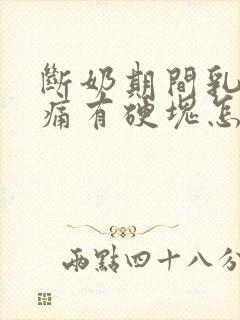 斷奶期間乳
痛有硬塊怎
兩點四十八分